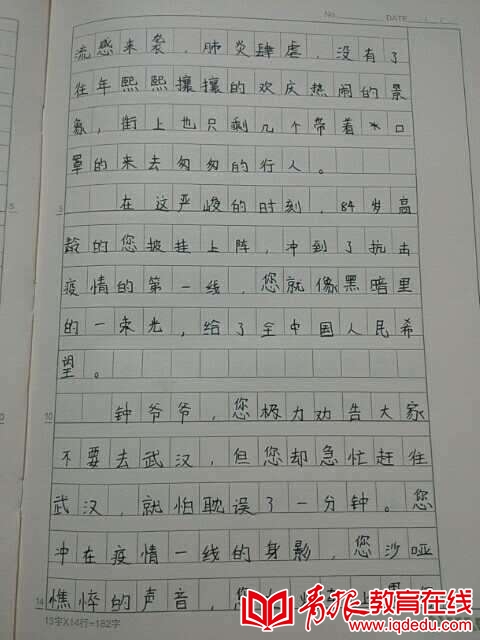 NO.
DATE
流感来袭，肺炎肆虐，没有了
往年熙熙攘攘的欢庆热闹的景
象，街上也只剩几个带着口
罩的来去匆匆的行人。
在这严峻的时刻，84岁高
龄的您披挂上阵，冲到了抗击
疫情的第一线，您就像黑暗里
的一束光，给了全中国人民希
望。
钟爷爷，您极力劝告大家
不要去武汉，但您却急忙赶往
武汉，就怕耽误了一分钟。您
冲在疫情一线的身影，您沙哑
憔悴的声音，您
5
5
10
10
14
13字X14行=182字
青报教育在线
www.iqdedu.com